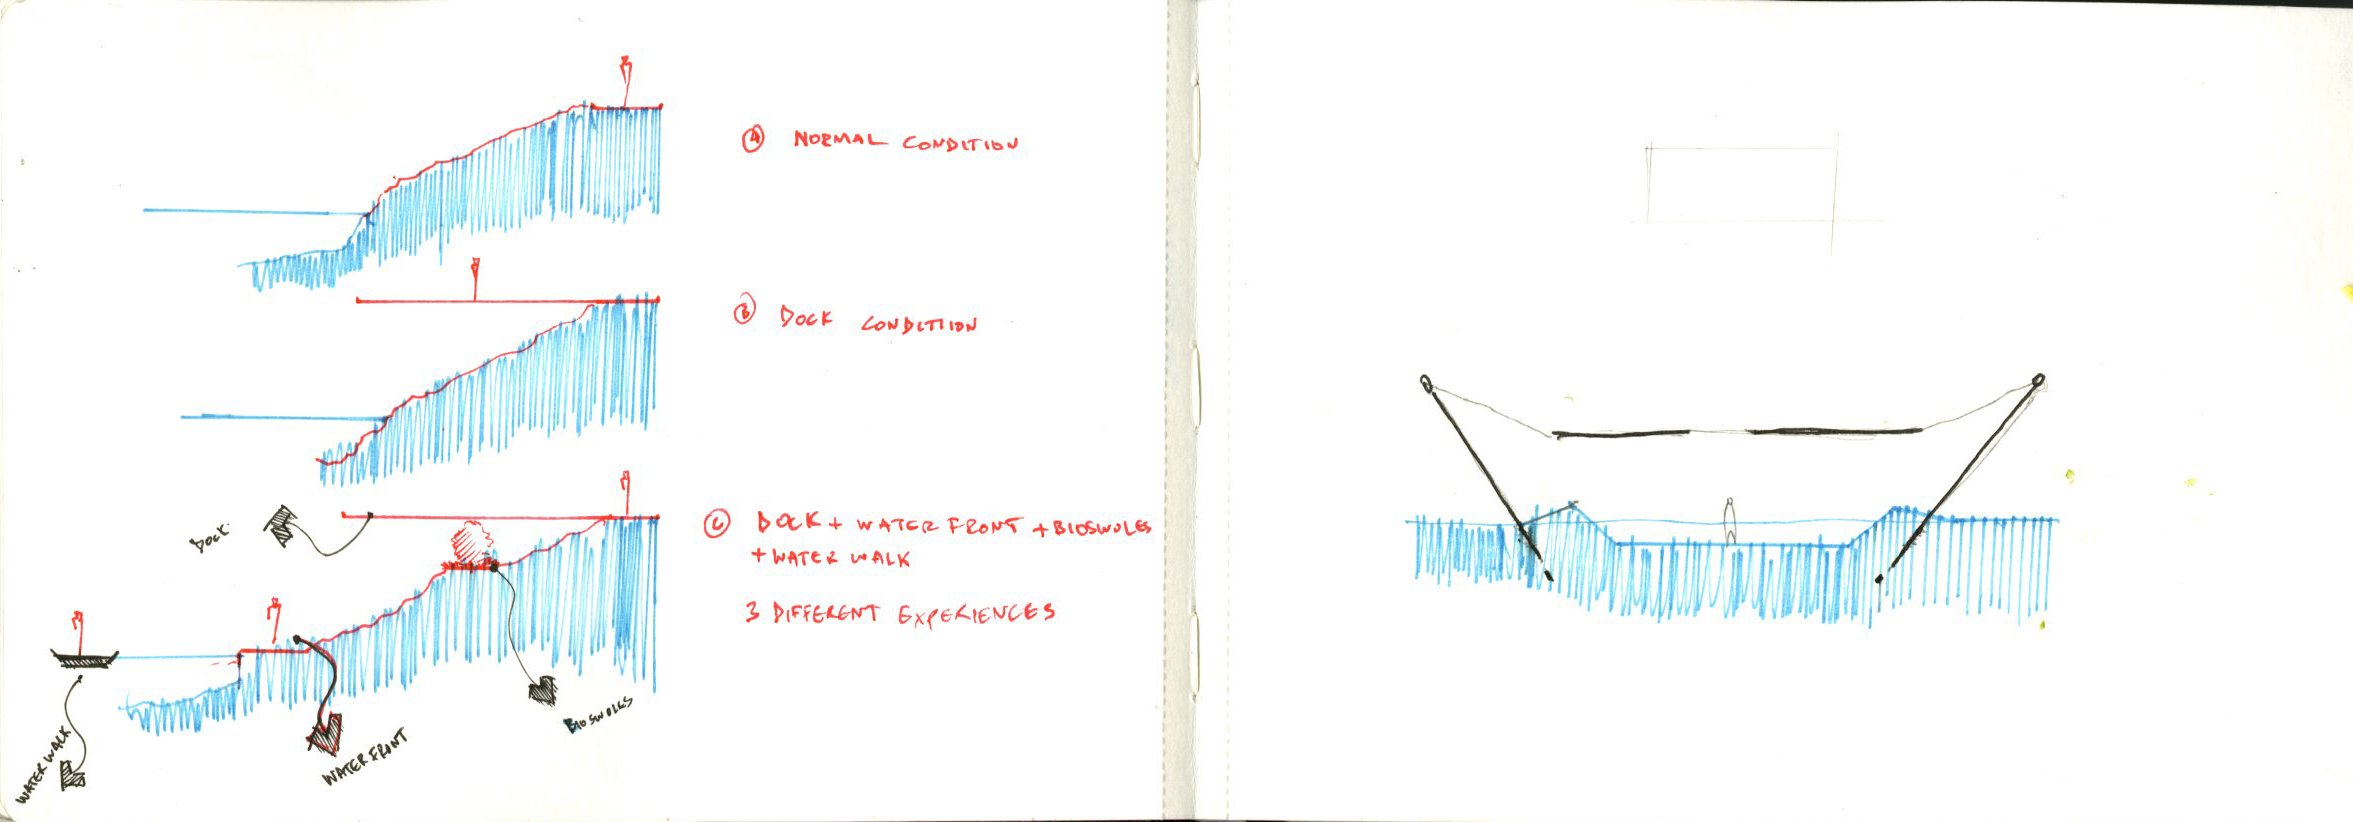 A NORMAL CONDITION
B DOCK CONDITIION
C DOCK + WATER FRONT + BIOSWOLES
+ WATER WALK
3 DIFFERENT EXPERIENCES
DOCK
WATER WALK
WATER FRONT
BIOSWOLES